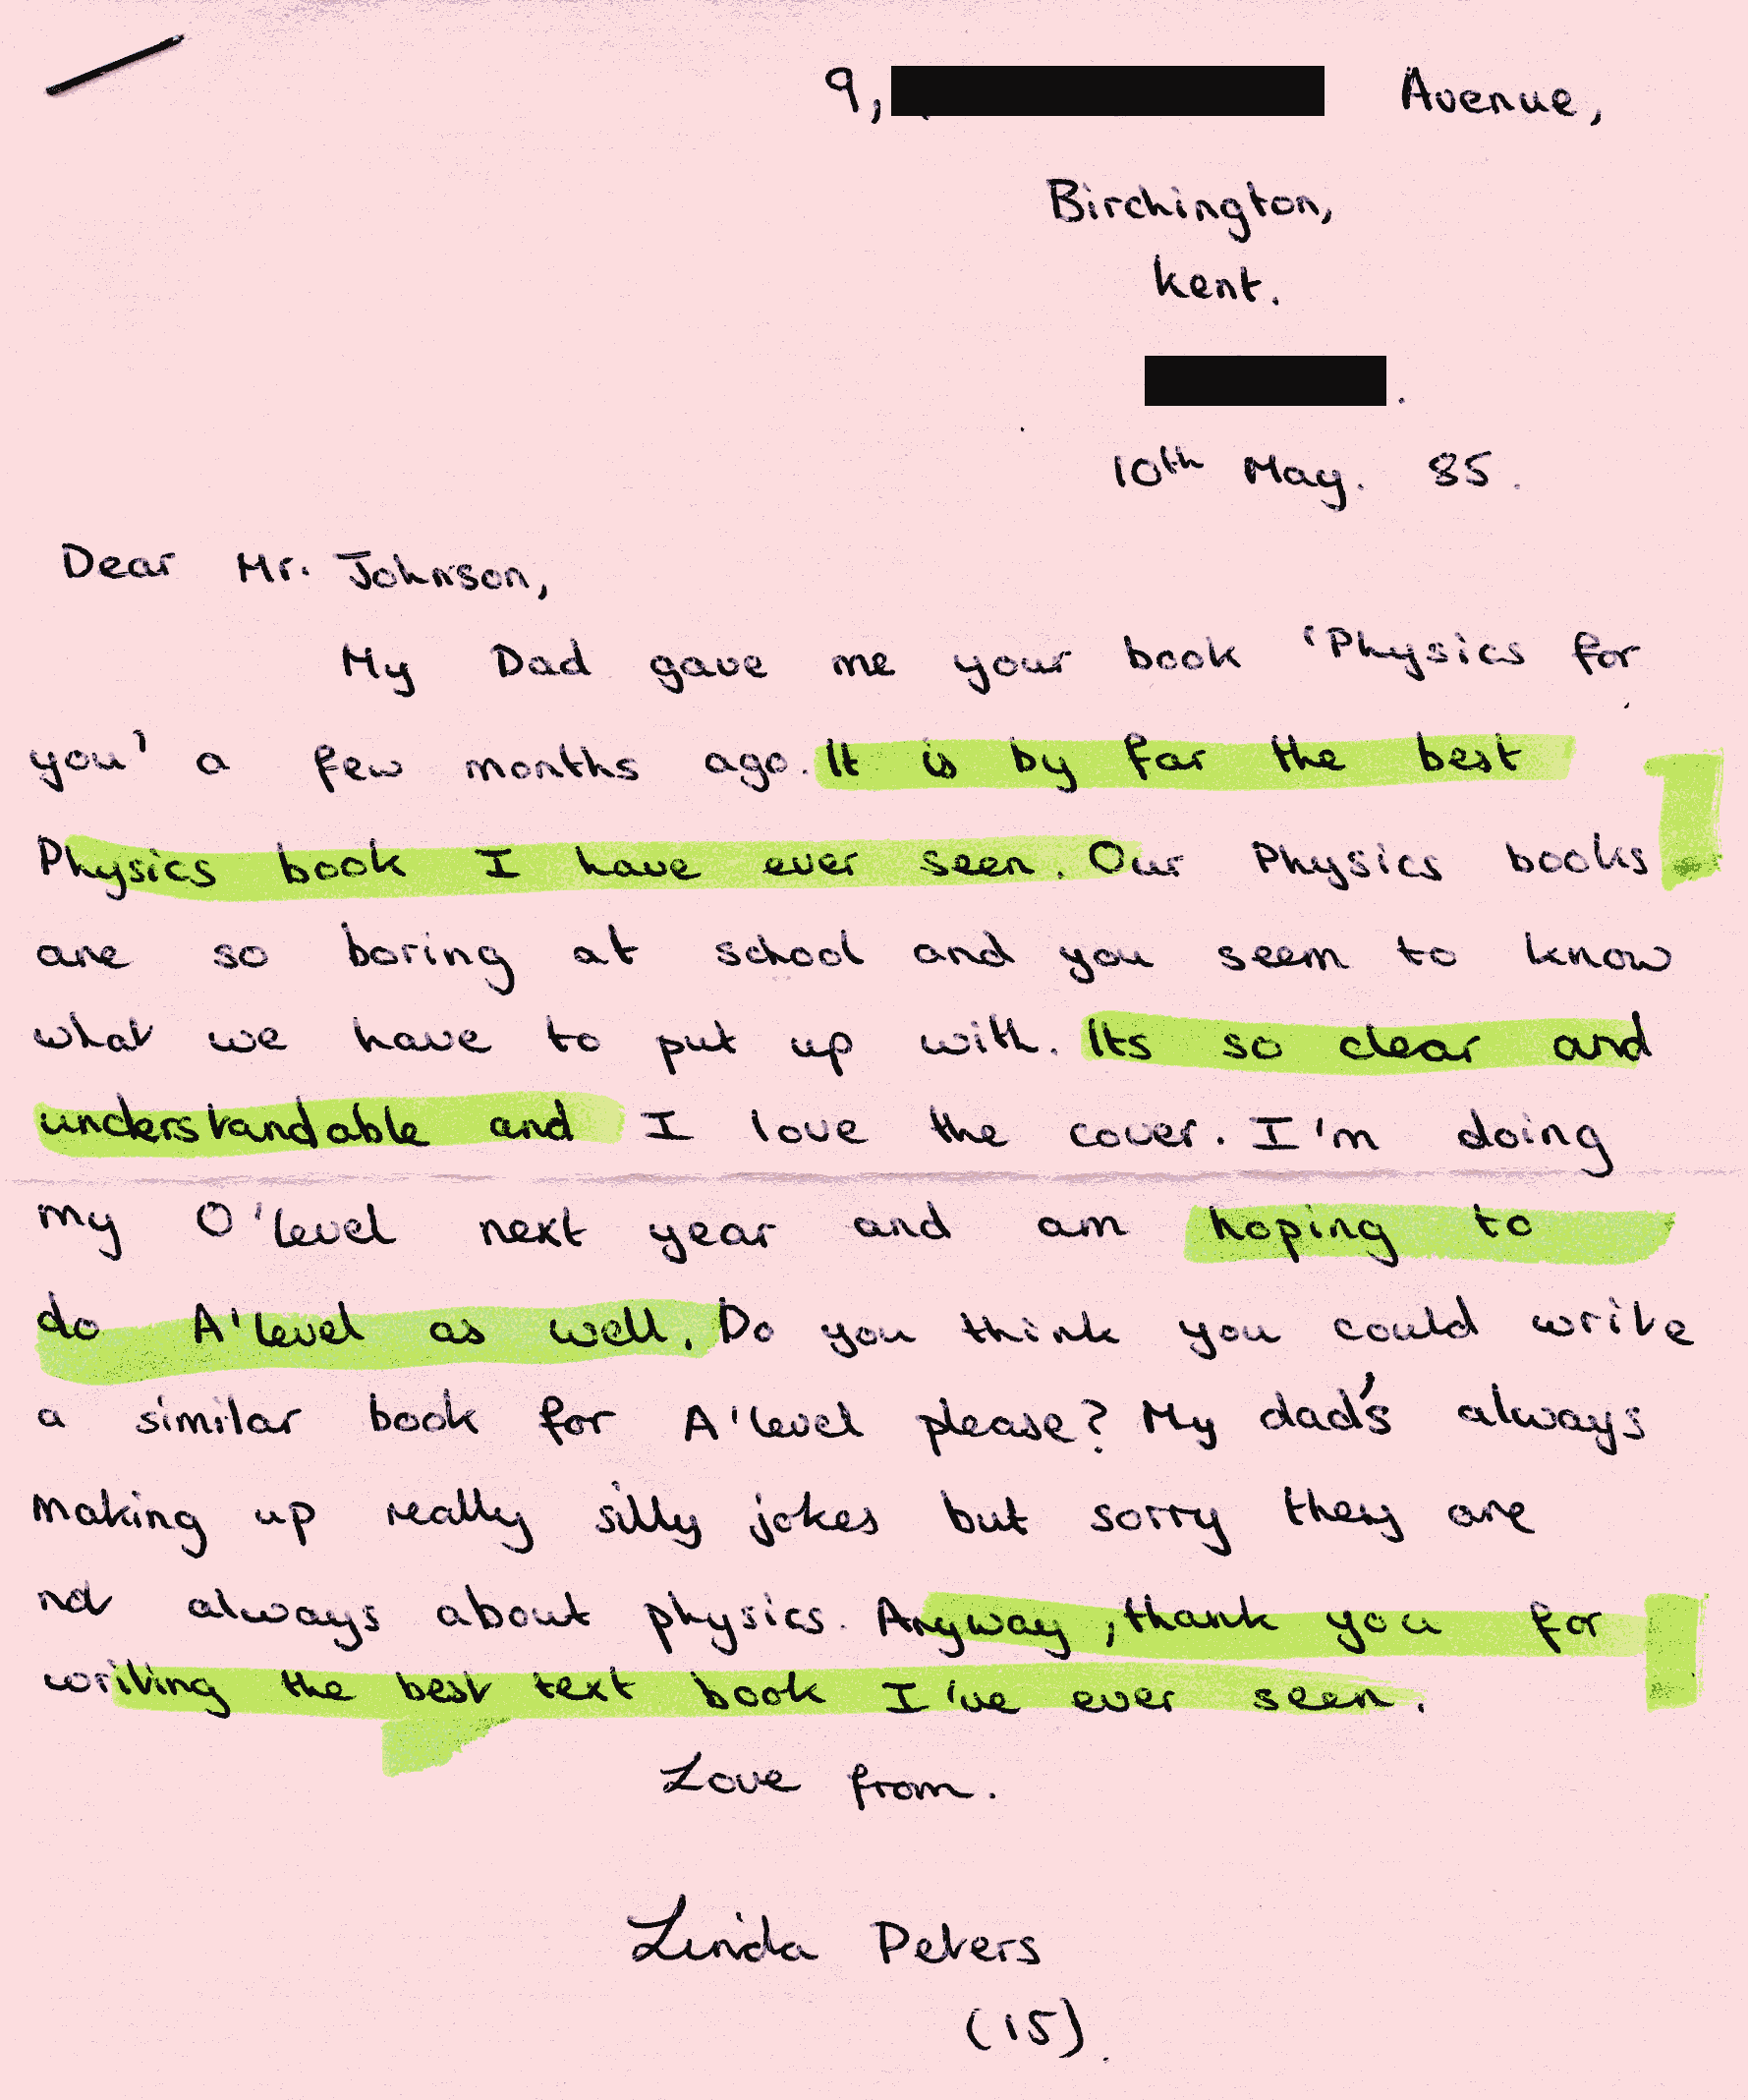 9, Avenue,
Birchington,
Kent.
10th May. 85.
Dear Mr. Johnson,
My Dad gave me your book 'Physics for
you' a few months ago. It is by far the best
Physics book I have ever seen. Our Physics books
are so boring at school and you seem to know
what we have to put up with. Its so clear and
understandable and I love the cover. I'm doing
my O'level next year and am hoping to
do A'level as well. Do you think you could write
a similar book for A'level please? My dad's always
making up really silly jokes but sorry they are
not always about physics. Anyway, thank you for
writing the best text book I've ever seen.
Love from.
Linda Peters
(15).